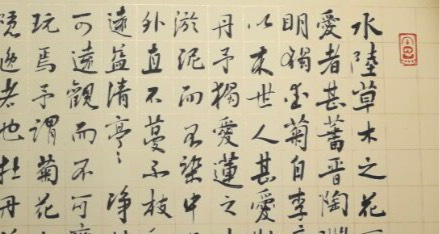 水陸草木之花
愛者甚蕃晉陶淵
明獨愛菊自李
以來世人甚愛
丹予獨愛蓮之
淤泥而不染中
外直不蔓不枝
遠益清亭〻净
可遠觀而不可
玩焉予謂菊花
隱逸者也牡丹